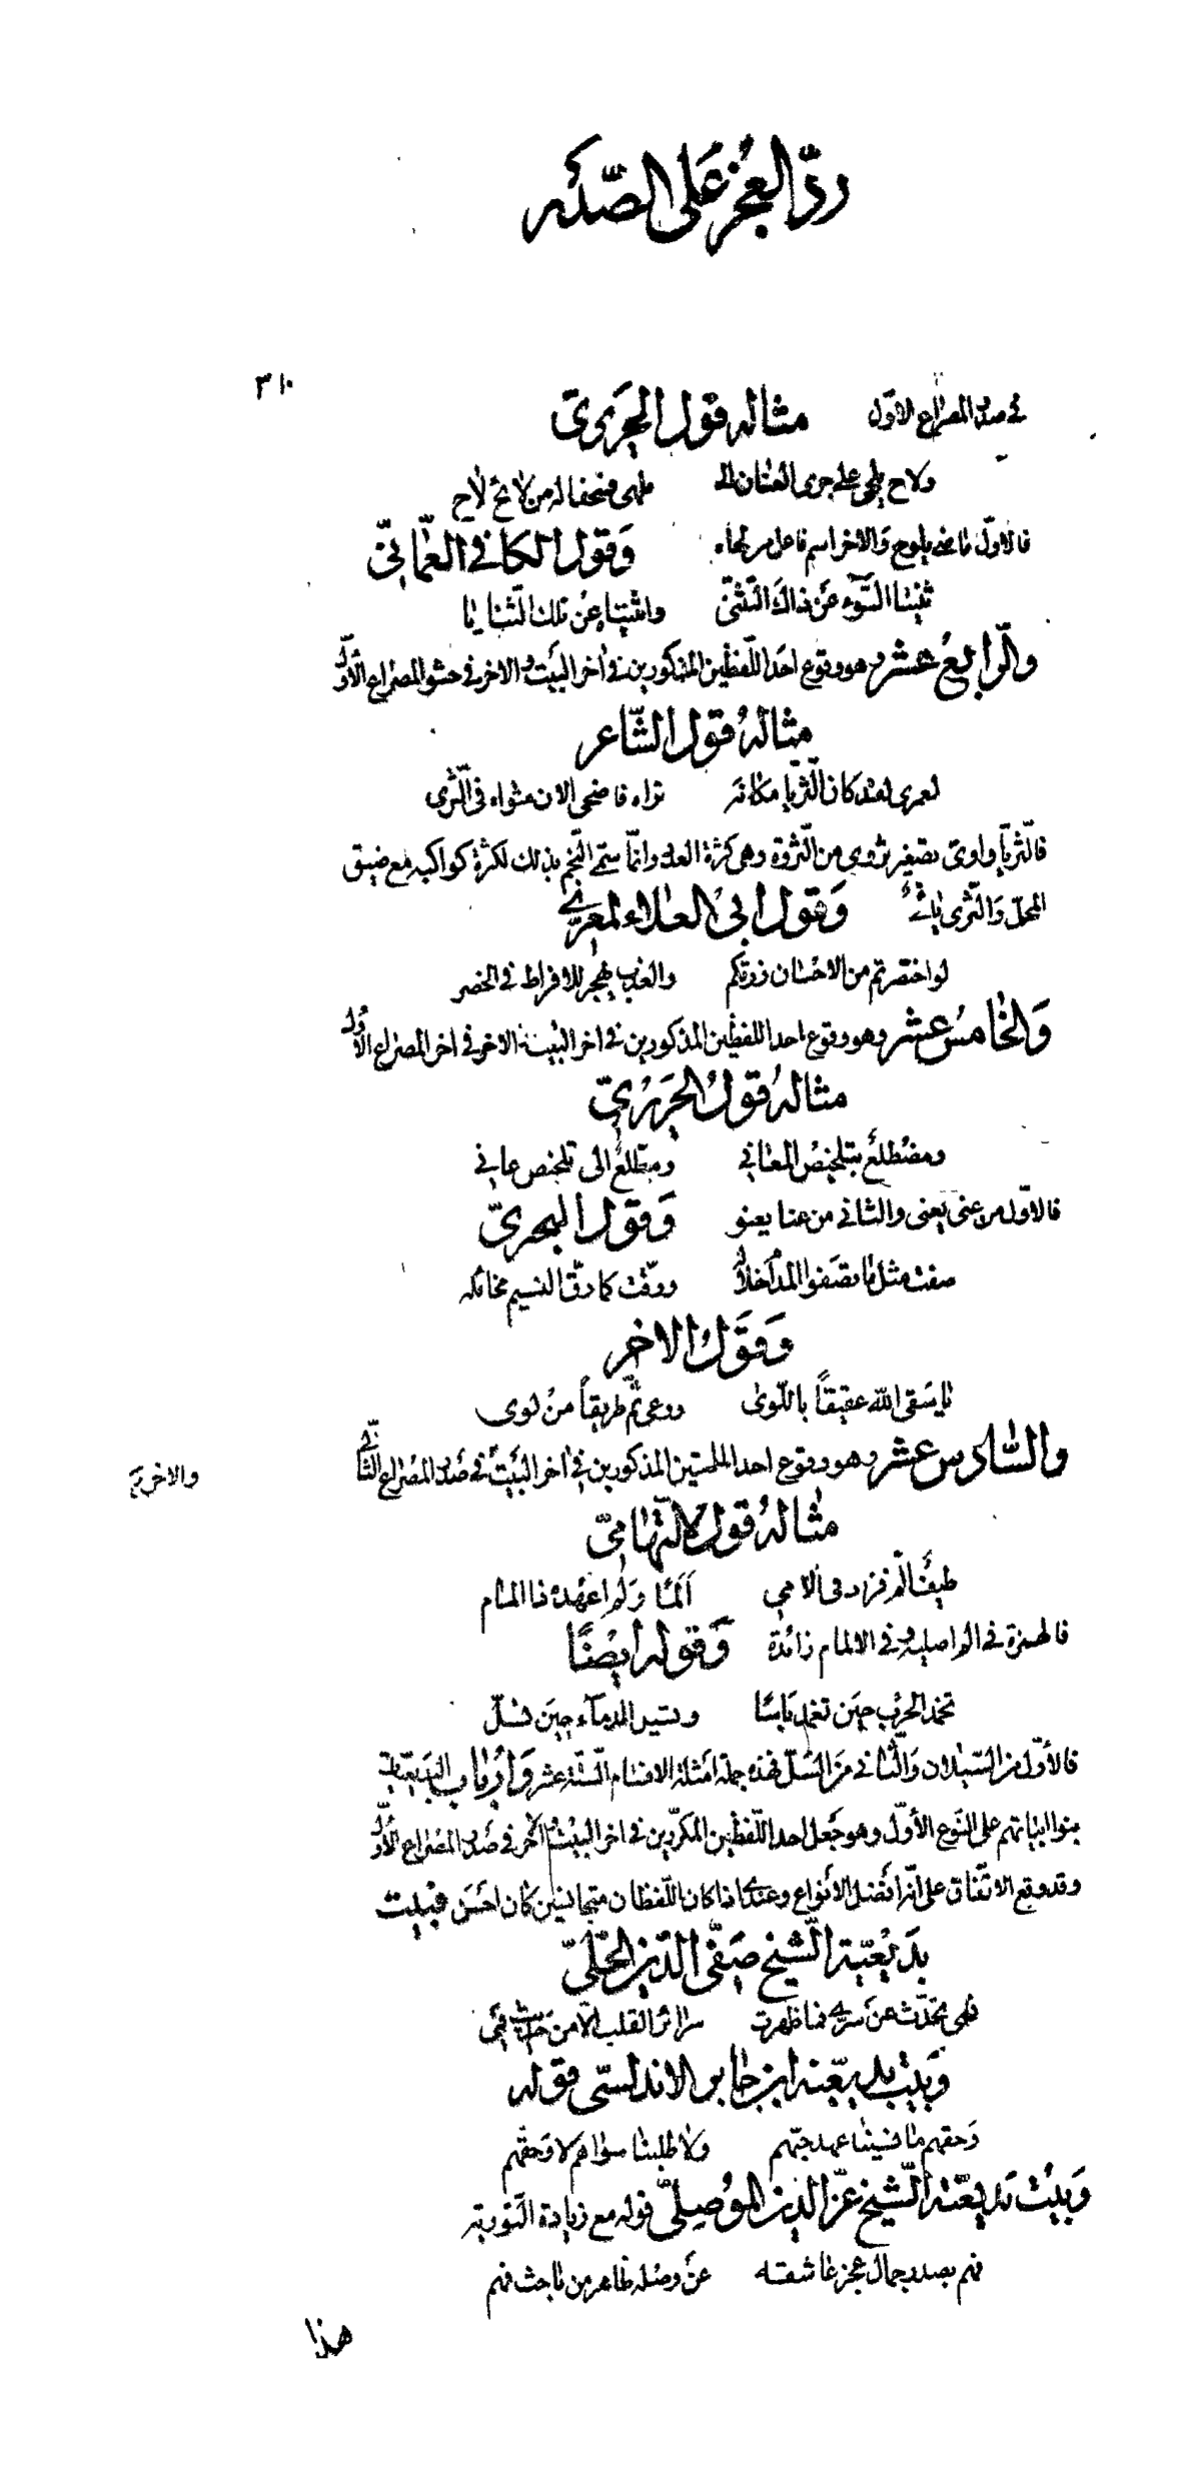 ردّ العجز على الصّدر
٣١٠
في صدر المصراع الاوّل مثاله قول الحريريّ
ولاح يلحى على جرى العنان الى ملهى فسحقا له من لائح لاح
فالاوّل ماضى يلوح والاخر اسم فاعل من لحاه وقول الكافي العمّانيّ
ثنينا السّوء عن ذاك التّثنّى واثنينا عن تلك الثّنايا
والرّابع عشر وهو وقوع احد اللّفظين المذكورين في اخر البيت والاخر في حشو المصراع الاوّل
مثاله قول الشّاعر
لعمرى لقد كان الثّريا مكانه ثراء فاضحى الان مثواه في الثّرى
فالثّريّا واوىّ تصغير ثروى من الثّروة وهى كثرة العدد وانّما سمّى النّجم بذلك لكثرة كواكبه مع ضيق
المحلّ والثّرى يائىّ وقول ابى العلاء المعرّى
لو اختصرتم من الاحسان زرتكم والعذب يهجر للافراط في الخصر
والخامس عشر وهو وقوع احد اللفظين المذكورين في اخر البيت والاخر في اخر المصراع الاوّل
مثاله قول الحريريّ
ومضطلع بتلخيص المعاني ومطّلع الى تلخيص عاني
فالاوّل من عنى يعنى والثانى من عنا يعنو وقول البحتريّ
صفت مثل ما تصفو المدام خلاله ورقّت كما رقّ النسيم شمائله
وقول الاخر
يا سقى الله عقيقاً باللّوى ورعى ثَمّ طريقاً من لوى
والسّادس عشر وهو وقوع احد الملحقين المذكورين في اخر البيت في صدر المصراع الثّاني
والاخر
مثاله قول التّهاميّ
طيف المّ فزاد في الامي ألمّا ولم اعهده ذا المام
فالهمزة في الم اصلية وفي الالمام زائدة وقوله ايضًا
تخمد الحرب حين تغمد بأسًا وتسيل الدمآء حين تسلّ
فالأوّل من السّيلان والثّاني من السّلّ فهذه جملة امثلة الاقسام السّتّة عشر وأرباب البديعيات
بنوا ابياتهم على النّوع الأوّل وهو جعل احد اللّفظين المكرّرين في اخر البيت والاخر في صدر المصراع الأوّل
وقد وقع الاتّفاق على انّه افضل الأنواع وعندى اذا كان اللّفظان متجانسين كان احسن فبيت
بديعيّة الشّيخ صفّى الدّين الحلّىّ
فمى تحدّث عن سرّى فما ظهرت سرائر القلب الّا من حديث فمى
وبيت بديعيّة ابن جابر الاندلسّى قوله
وحقّهم ما نسينا عهد حبّهم ولا طلبنا سواهم لا وحقّهم
وبيت بديعيّة الشّيخ عزّ الدين الموصلىّ قوله مع زيادة التّورية
فهم بصدر جمال عجز عاشقه عن وصله ظاهر من باحث فهم
هذا